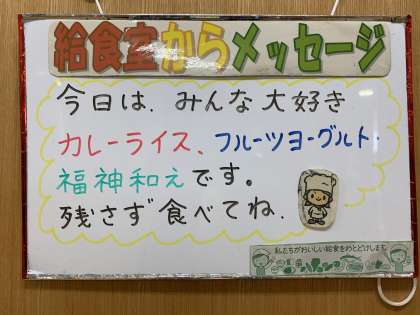 給食室からメッセージ
今日は、みんな大好き
カレーライス、フルーツヨーグルト・
福神和えです。
残さず食べてね。
私たちがおいしい給食をおとどけします。